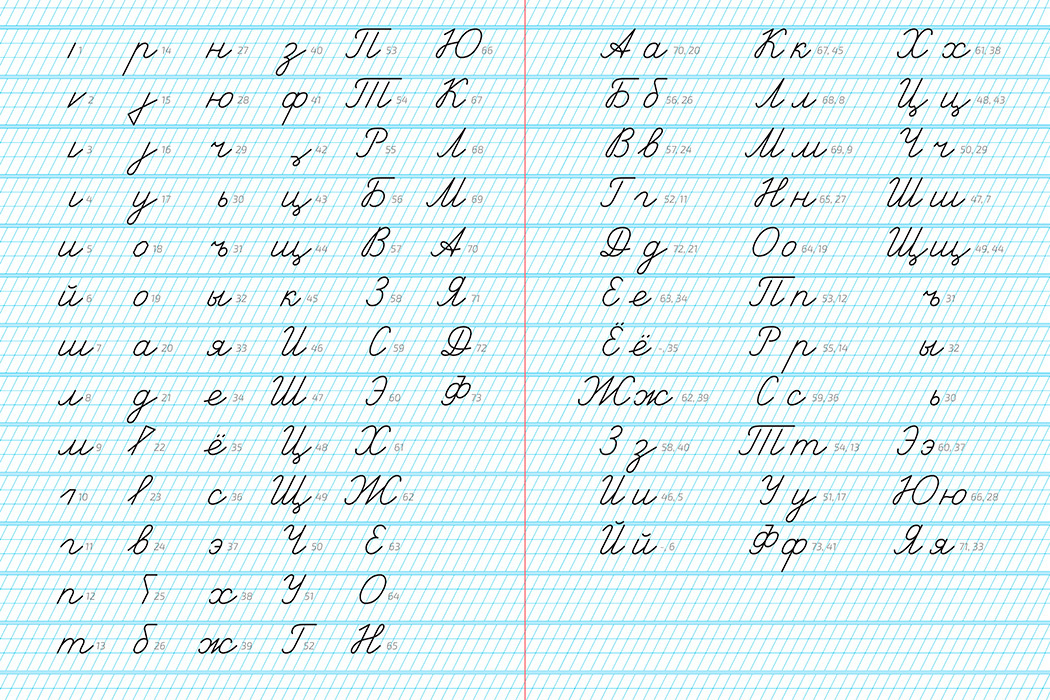 1 р 14 н 27 з 40 П 53 Ю 66
2 15 ю 28 ф 41 Т 54 К 67
3 16 ч 29 42 Р 55 Л 68
4 у 17 ь 30 ц 43 Б 56 М 69
и 5 о 18 ъ 31 щ 44 В 57 А 70
й 6 о 19 ы 32 к 45 З 58 Я 71
ш 7 а 20 я 33 И 46 С 59 Д 72
л 8 д 21 е 34 Ш 47 Э 60 Ф 73
м 9 22 ё 35 Ц 48 Х 61
10 23 с 36 Щ 49 Ж 62
г 11 в 24 э 37 Ч 50 Е 63
п 12 25 х 38 У 51 О 64
т 13 б 26 ж 39 Г 52 Н 65
А а 70, 20 К к 67, 45 Х х 61, 38
Б б 56, 26 Л л 68, 8 Ц ц 48, 43
В в 57, 24 М м 69, 9 Ч ч 50, 29
Г г 52, 11 Н н 65, 27 Ш ш 47, 7
Д д 72, 21 О о 64, 19 Щ щ 49, 44
Е е 63, 34 П п 53, 12 ъ 31
Ё ё -, 35 Р р 55, 14 ы 32
Ж ж 62, 39 С с 59, 36 ь 30
З з 58, 40 Т т 54, 13 Э э 60, 37
И и 46, 5 У у 51, 17 Ю ю 66, 28
Й й -, 6 Ф ф 73, 41 Я я 71, 33